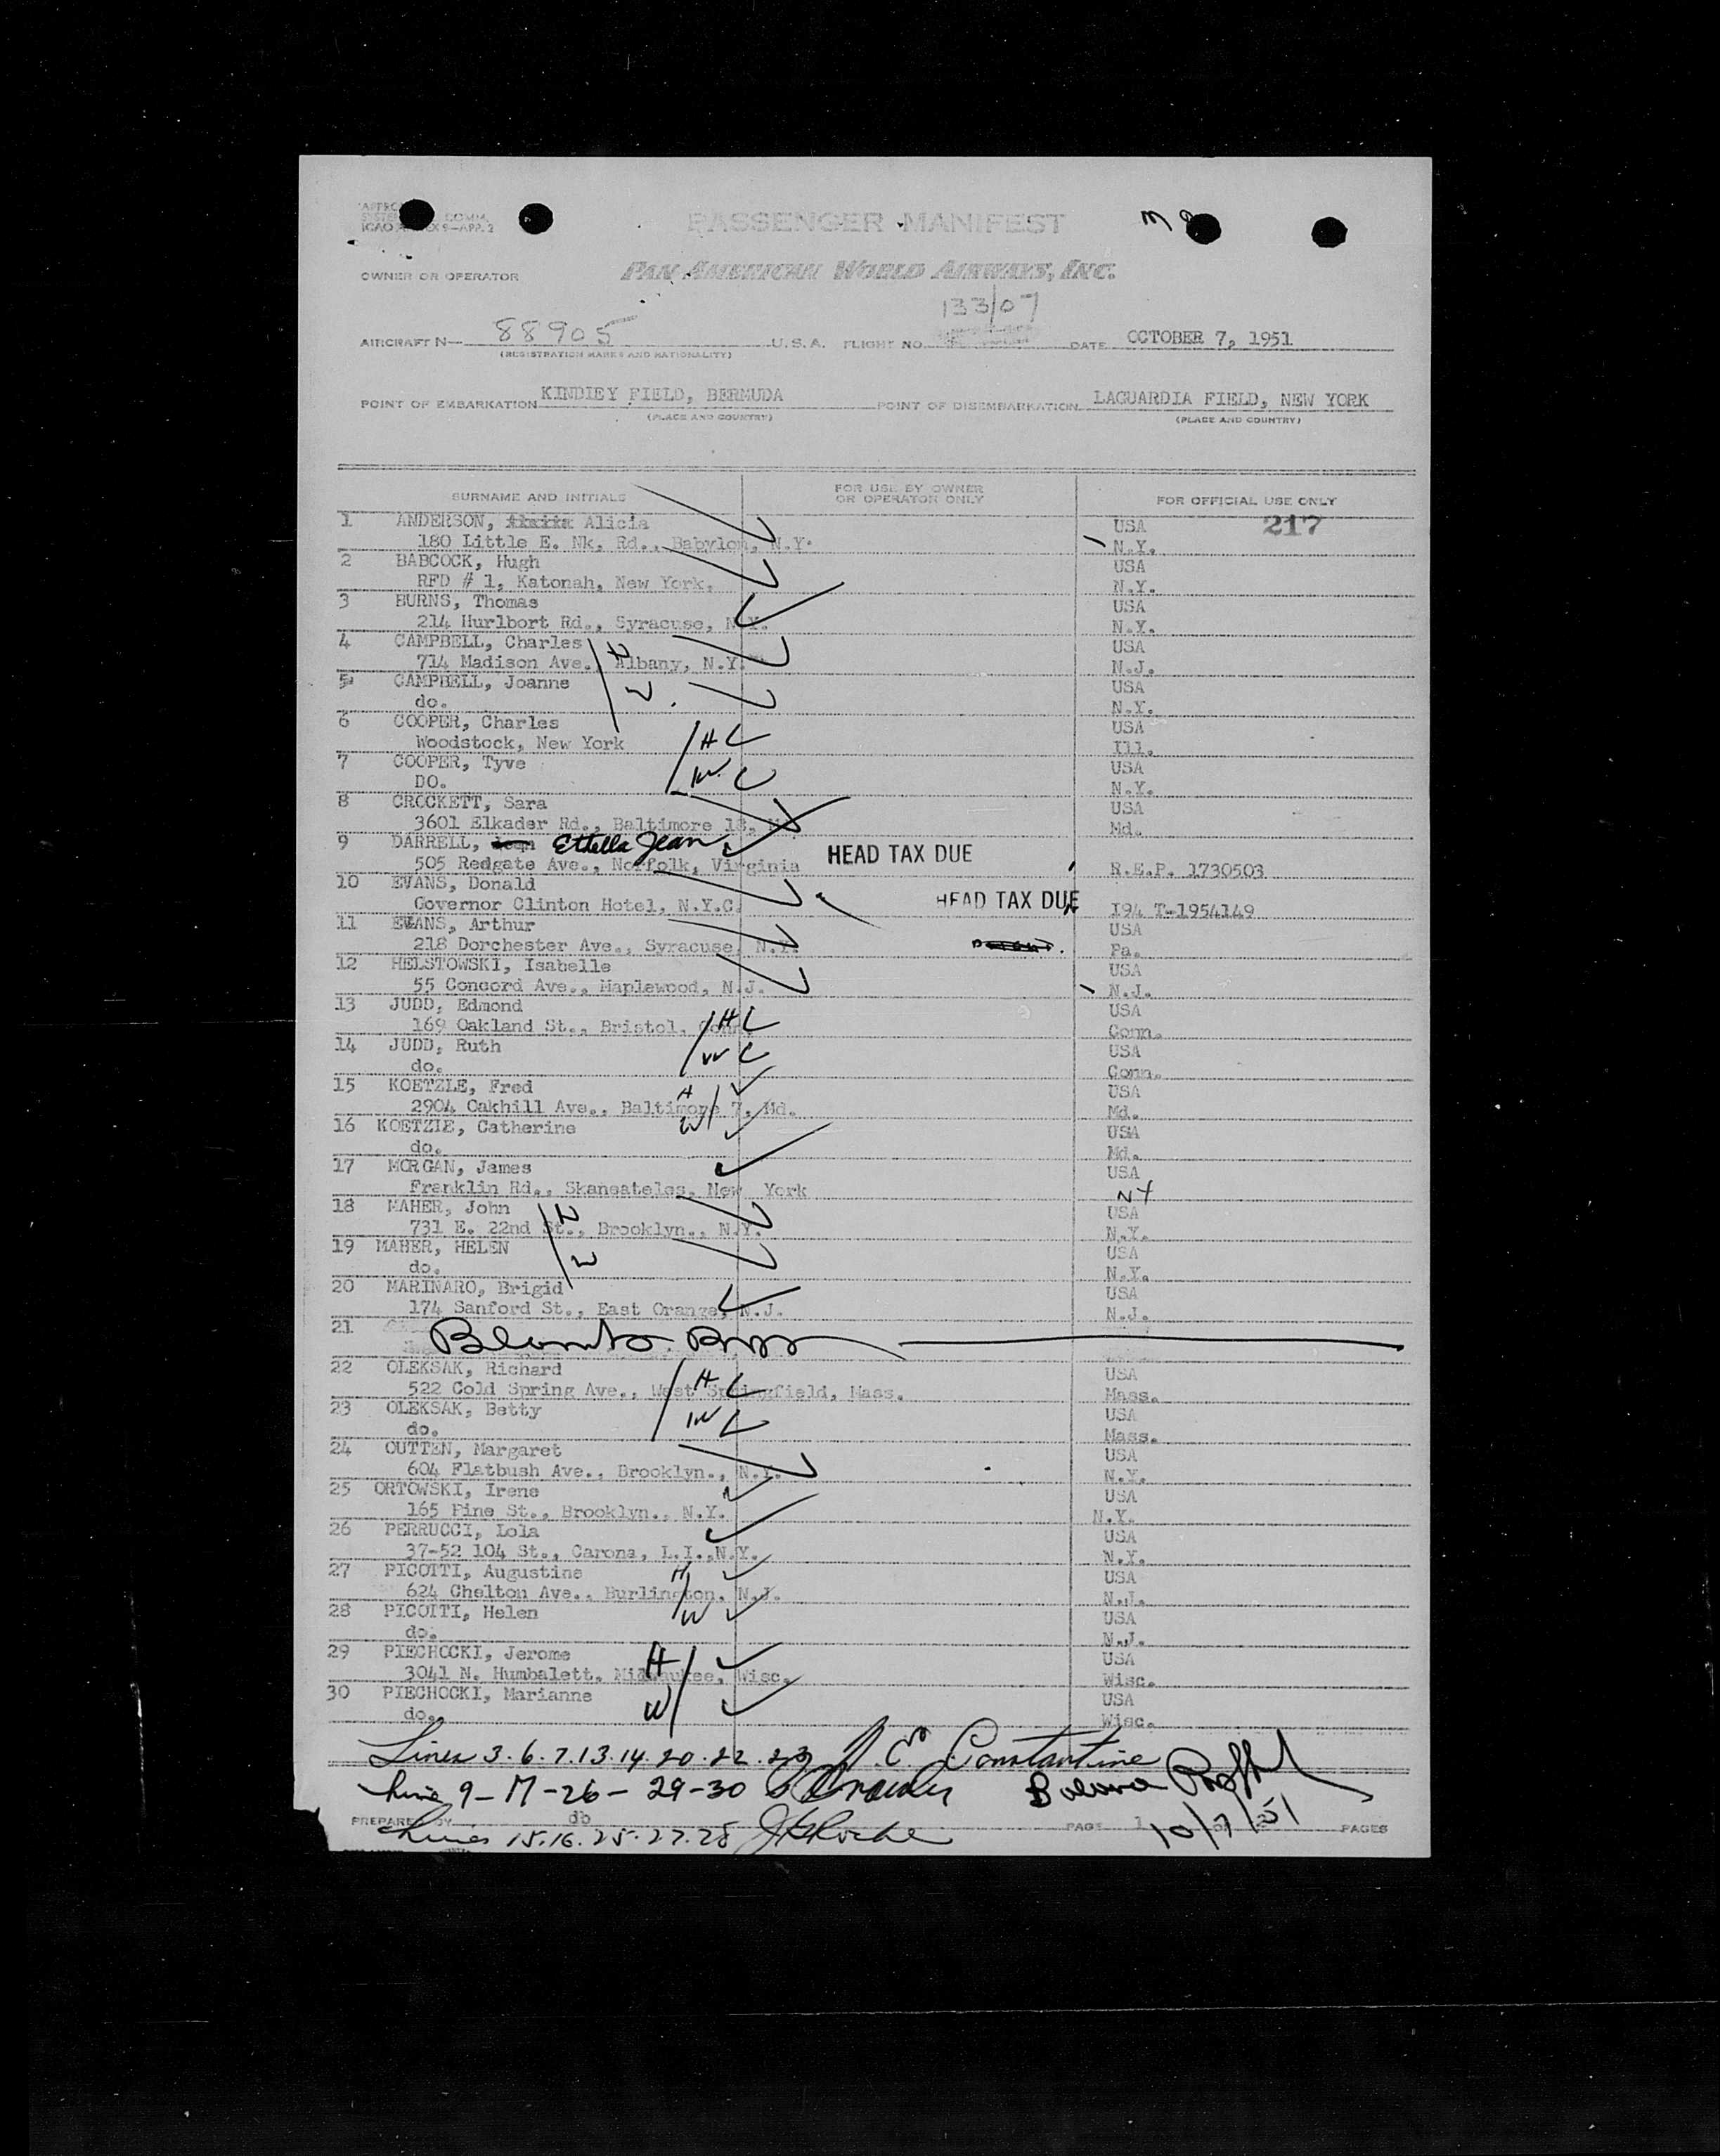 PASSENGER MANIFEST
OWNER OR OPERATOR PAN AMERICAN WORLD AIRWAYS, INC.
133/07
AIRCRAFT N— 88905 U.S.A. FLIGHT NO. DATE OCTOBER 7, 1951
(REGISTRATION MARKS AND NATIONALITY)
POINT OF EMBARKATION KINDLEY FIELD, BERMUDA POINT OF DISEMBARKATION LAGUARDIA FIELD, NEW YORK
(PLACE AND COUNTRY) (PLACE AND COUNTRY)
SURNAME AND INITIALS FOR USE BY OWNER OR OPERATOR ONLY FOR OFFICIAL USE ONLY
217
1 ANDERSON, Alicia USA
180 Little E. Nk, Rd., Babylon, N.Y. N.Y.
2 BABCOCK, Hugh USA
RFD # 1, Katonah, New York, N.Y.
3 BURNS, Thomas USA
214 Hurlbort Rd., Syracuse, N.Y. N.Y.
4 CAMPBELL, Charles H USA
714 Madison Ave., Albany, N.Y. N.J.
5 CAMPBELL, Joanne W USA
do. N.Y.
6 COOPER, Charles USA
Woodstock, New York H Ill.
7 COOPER, Tyve USA
DO. W N.Y.
8 CROCKETT, Sara USA
3601 Elkader Rd., Baltimore 18, Md.
9 DARRELL, Ettella Jean HEAD TAX DUE
505 Redgate Ave., Norfolk, Virginia R.E.P. 1730503
10 EVANS, Donald HEAD TAX DUE
Governor Clinton Hotel, N.Y.C. I94 T-1954149
11 EVANS, Arthur USA
218 Dorchester Ave., Syracuse, N.Y. Pa.
12 HELSTOWSKI, Isabelle USA
55 Concord Ave., Maplewood, N.J. N.J.
13 JUDD, Edmond USA
169 Oakland St., Bristol, Conn. H Conn.
14 JUDD, Ruth W USA
do. Conn.
15 KOETZLE, Fred H USA
2904 Oakhill Ave., Baltimore 7, Md. Md.
16 KOETZLE, Catherine W USA
do. Md.
17 MORGAN, James USA
Franklin Rd., Skaneateles, New York NY
18 MAHER, John H USA
731 E. 22nd St., Brooklyn., N.Y. N.Y.
19 MAHER, HELEN W USA
do. N.Y.
20 MARINARO, Brigid USA
174 Sanford St., East Orange, N.J. N.J.
21
22 OLEKSAK, Richard H USA
522 Cold Spring Ave., West Springfield, Mass. Mass.
23 OLEKSAK, Betty W USA
do. Mass.
24 OUTTEN, Margaret USA
604 Flatbush Ave., Brooklyn., N.Y. N.Y.
25 ORTOWSKI, Irene USA
165 Pine St., Brooklyn., N.Y. N.Y.
26 PERRUCCI, Lola USA
37-52 104 St., Carona, L.I.,N.Y. N.Y.
27 PICOTTI, Augustine H USA
624 Chelton Ave., Burlington, N.J. N.J.
28 PICOTTI, Helen W USA
do. N.J.
29 PIECHOCKI, Jerome H USA
3041 N. Humbalett, Milwaukee, Wisc. Wisc.
30 PIECHOCKI, Marianne W USA
do. Wisc.
Lines 3.6.7.13.14.20.22.23 Constantine
Line 9-17-26-29-30
PREPARED BY db PAGE 1 10/7/51 PAGES
Lines 15.16.25.27.28